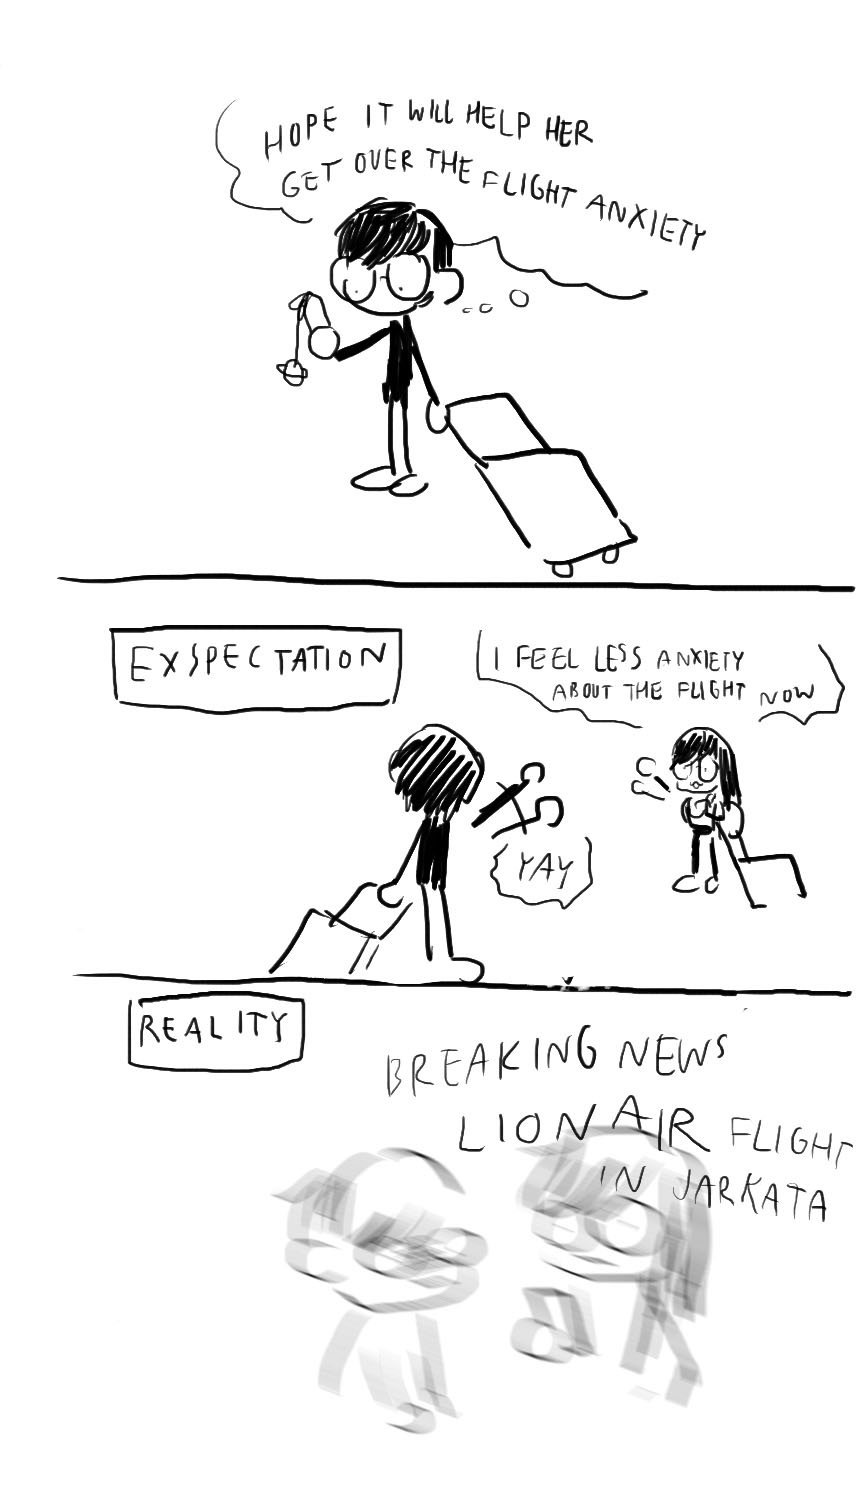 HOPE IT WILL HELP HER
GET OVER THE FLIGHT ANXIETY
EXSPECTATION
I FEEL LESS ANXIETY
ABOUT THE FLIGHT NOW
YAY
REALITY
BREAKING NEWS
LION AIR FLIGHT
IN JARKATA